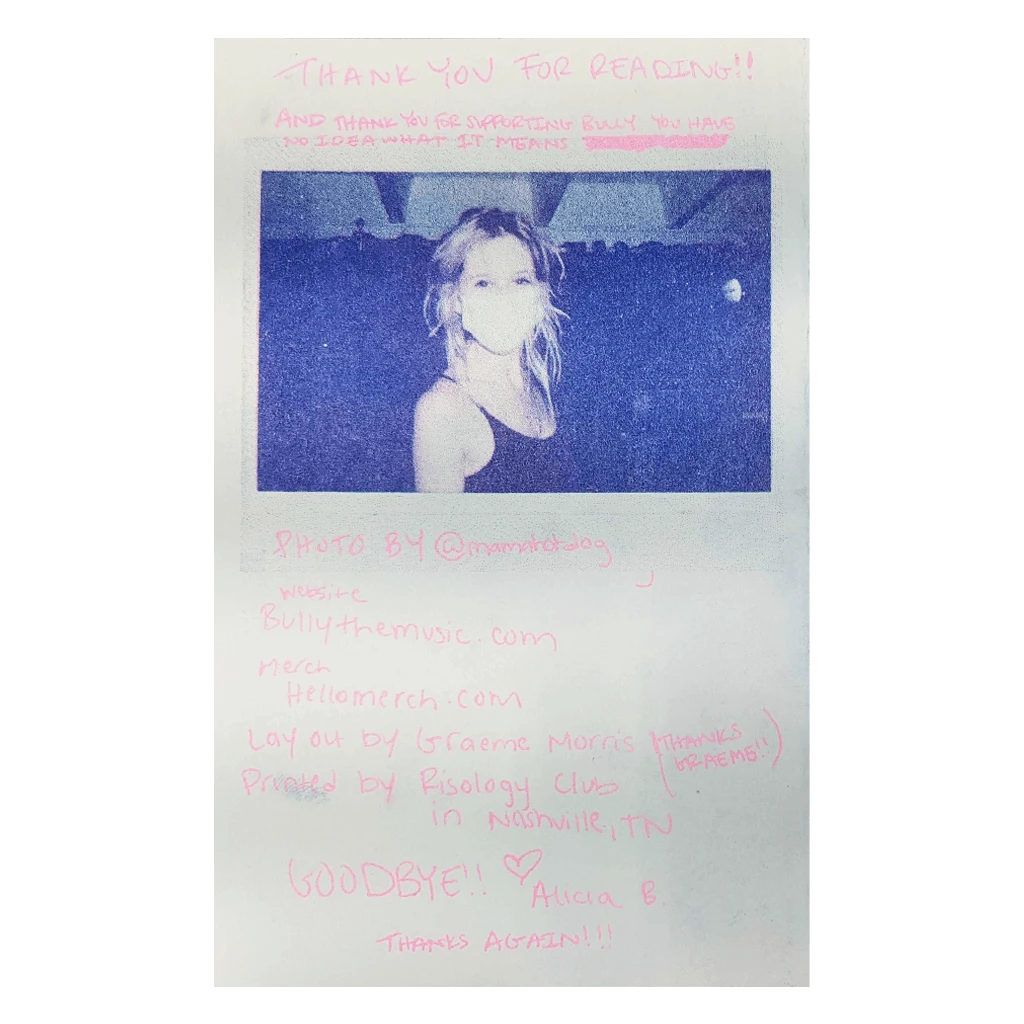 THANK YOU FOR READING!!
AND THANK YOU FOR SUPPORTING BULLY YOU HAVE
NO IDEA WHAT IT MEANS
PHOTO BY @mamahotdog
website
Bullythemusic.com
Merch
Hellomerch.com
Lay out by Graeme Morris (THANKS
GRAEME!!)
Printed by Risology Club
in Nashville, TN
GOODBYE!! ♡
Alicia B.
THANKS AGAIN!!!